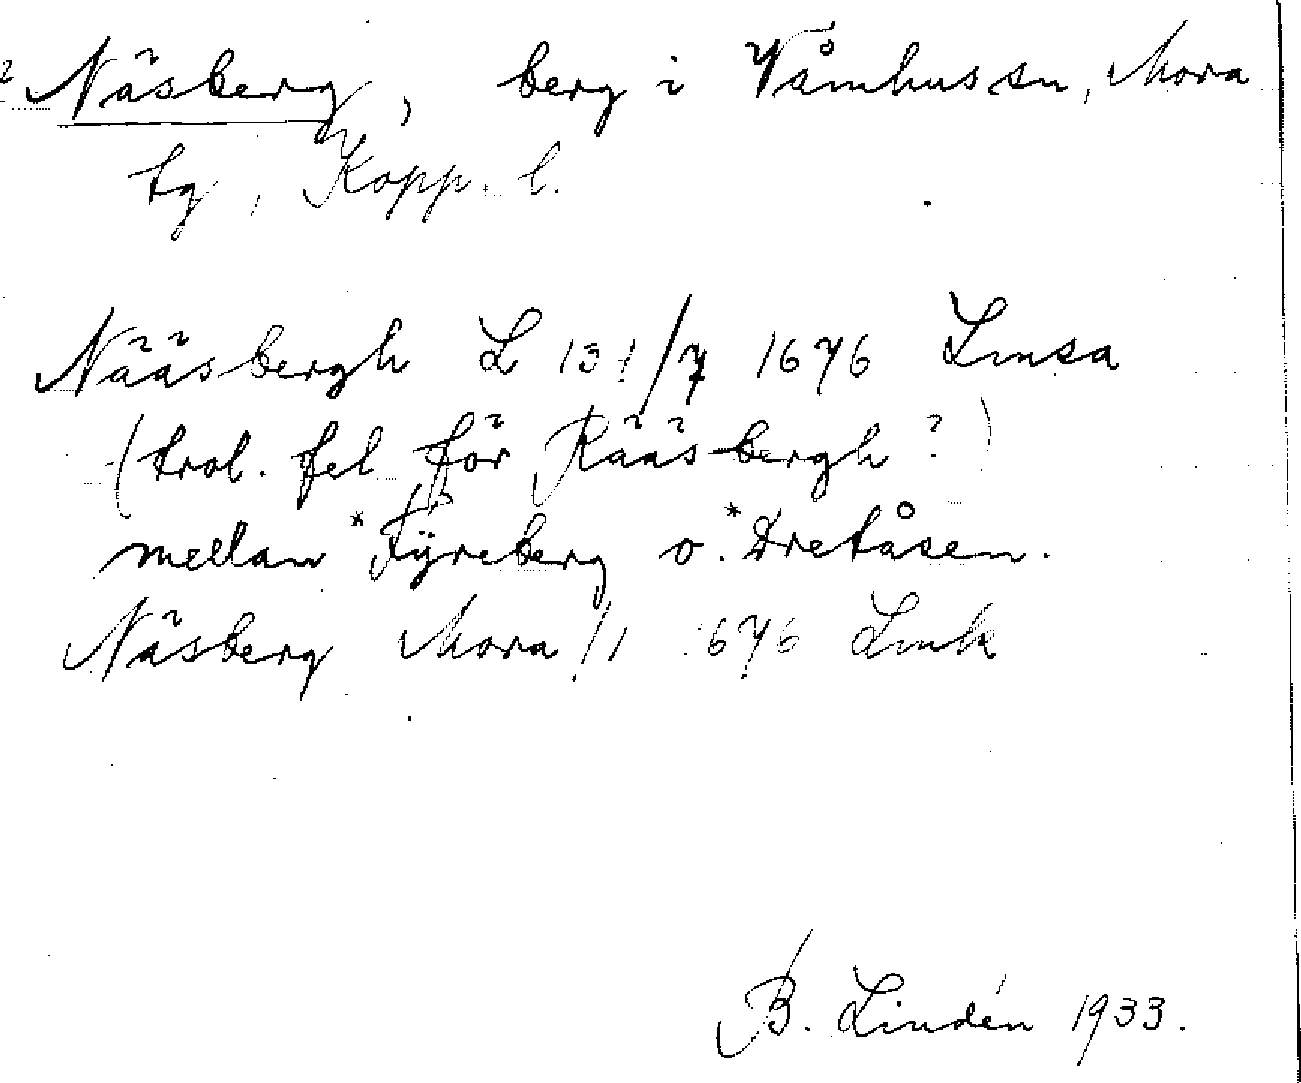 ? Näsberg, berg i Våmhus sn, Mora
tg, Kopp. l.
Nääsbergh L 131/7 1676 Lmsa
(trol. fel för Rääsbergh?)
mellan *Fyreberg o. *Dretåsen.
Näsberg Mora 1/1 1676 Lmk
B. Lindén 1933.